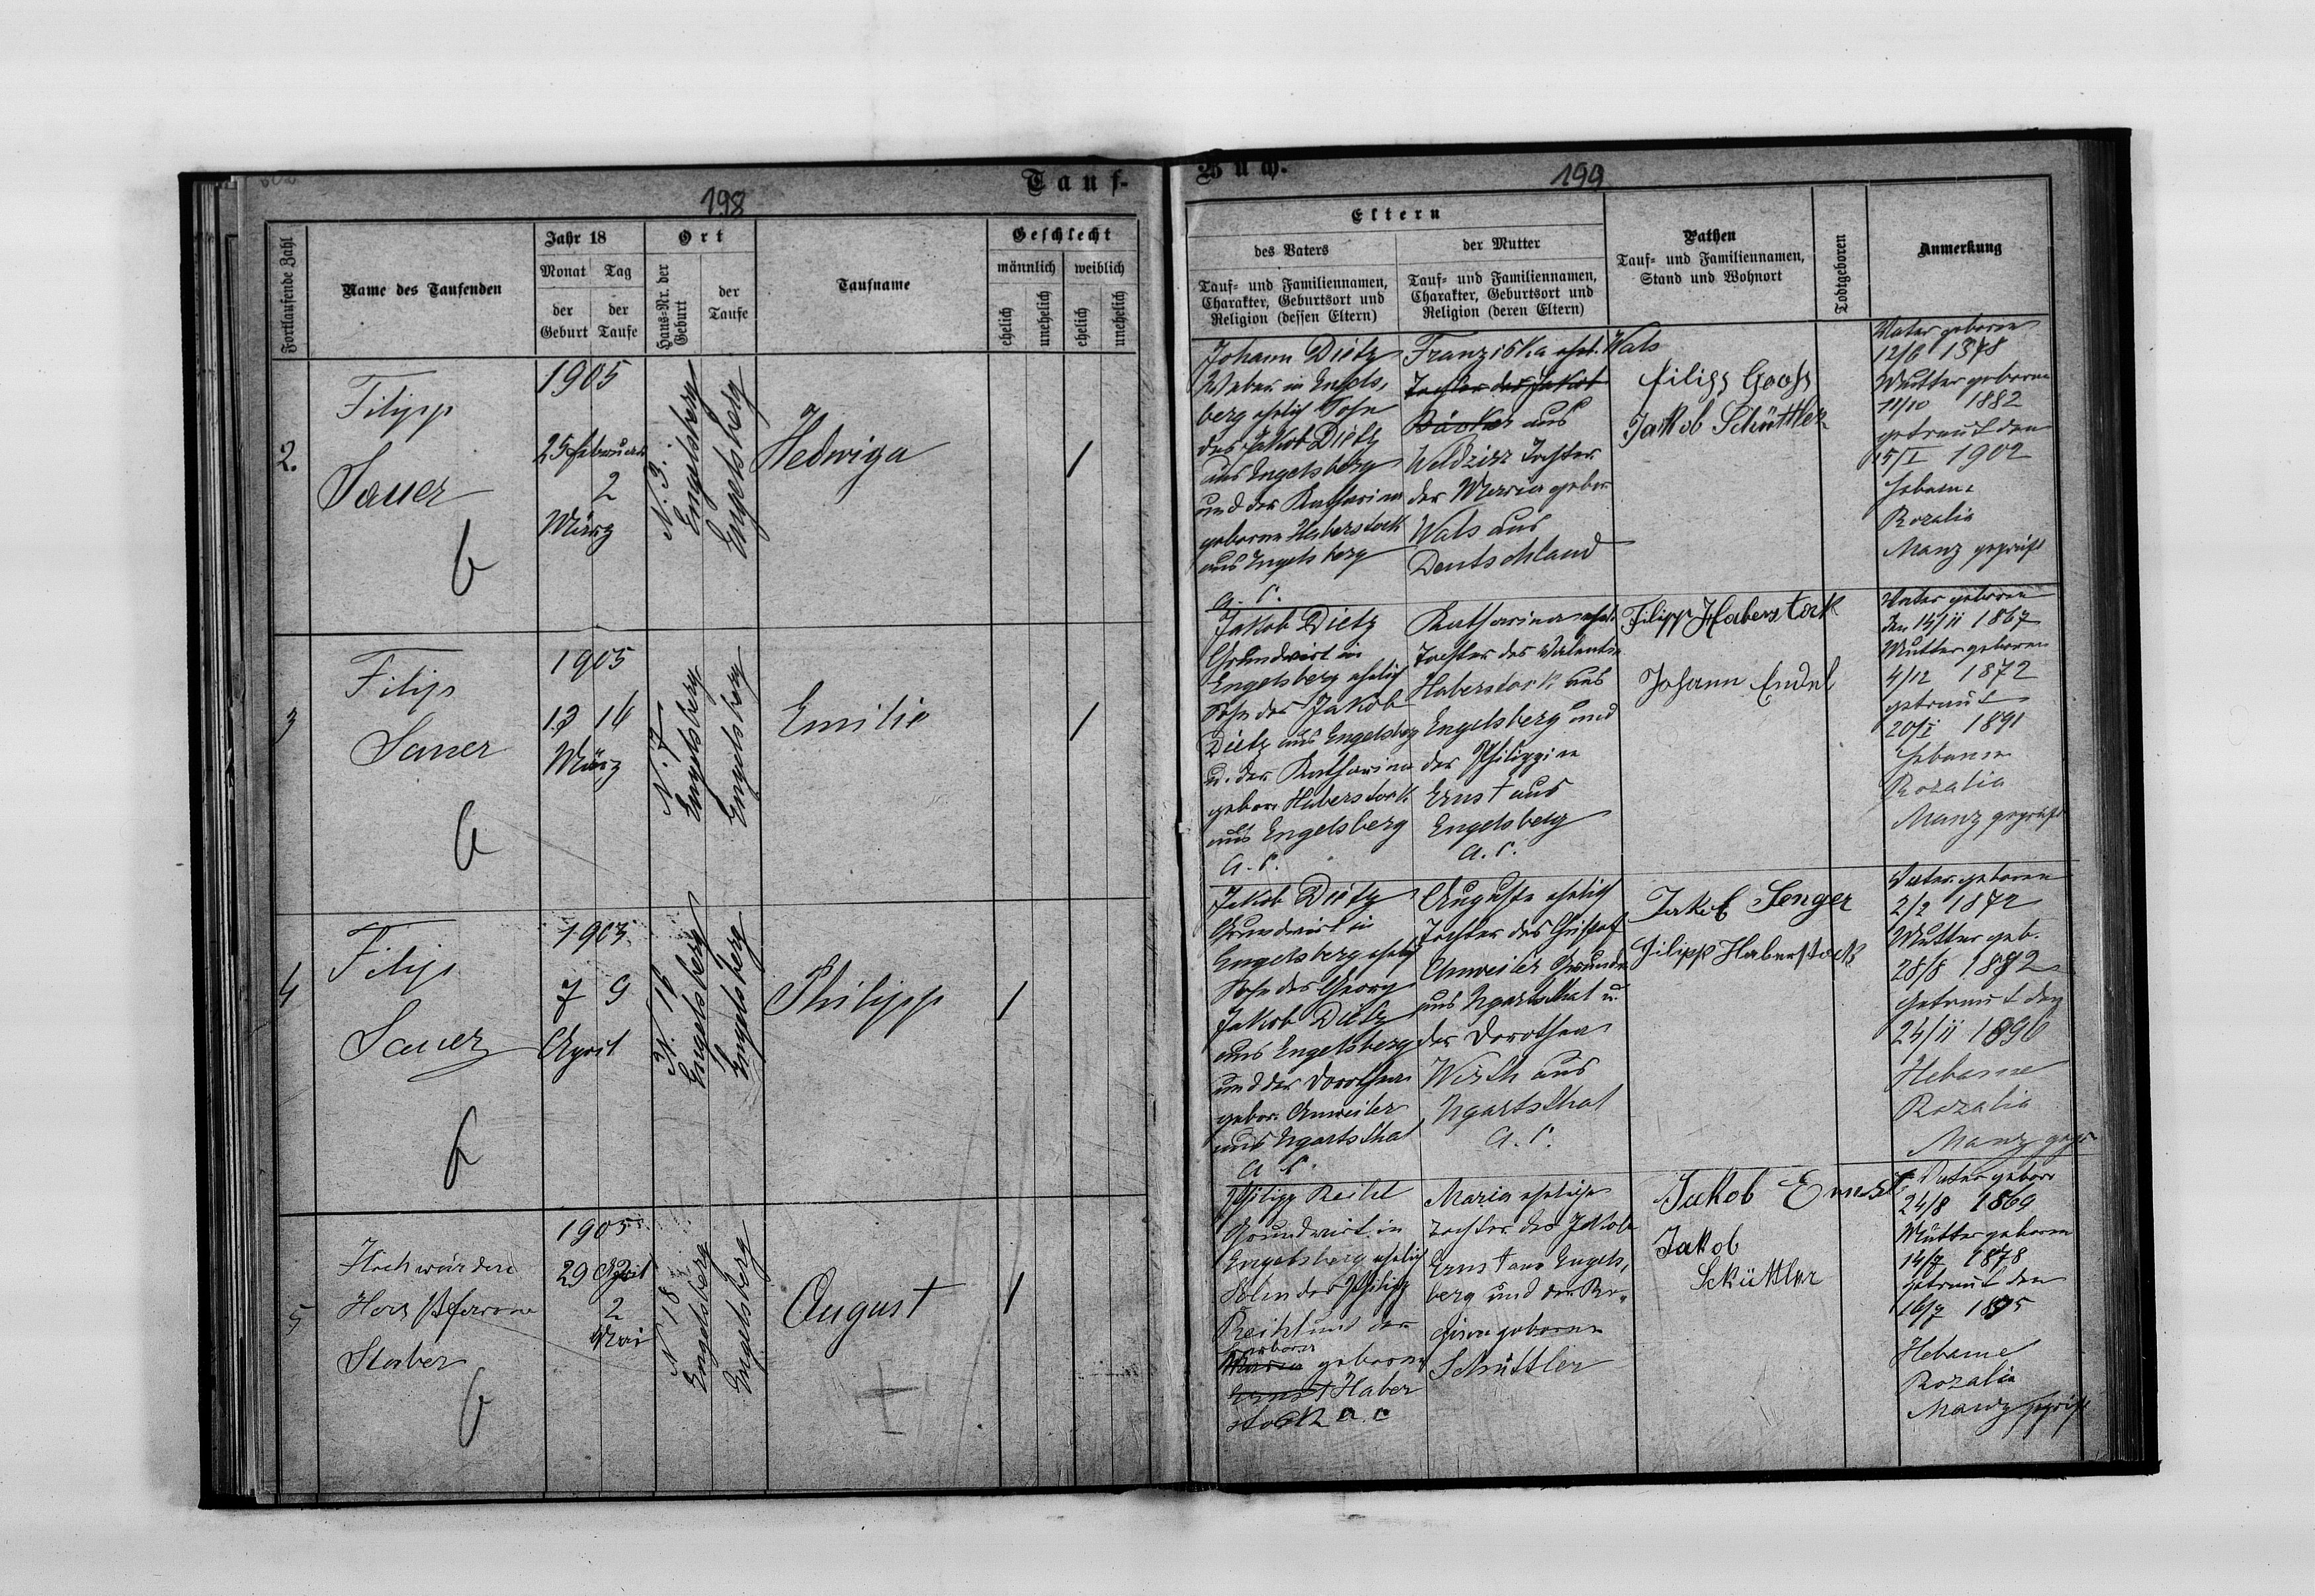 198
Tauf-
Fortlaufende Zahl
Name des Taufenden
Jahr 18
Monat
Tag
der Geburt
der Taufe
Ort
Haus-Nr. der Geburt
der Taufe
Taufname
Geschlecht
männlich
weiblich
ehelich
unehelich
ehelich
unehelich
2.
Filipp
Sauer
1905
25 Februar
2
März
N. 3.
Engelsberg
Engelsberg
Hedwiga
3
Filip
Sauer
1905
13 14
März
N. 7
Engelsberg
Engelsberg
Emilie
4
Filip
Sauer
1905
7 9
April
N. 16
Engelsberg
Engelsberg
Philipp
5
Hochwürden
Herr Pfarrer
1905
29 April
2
Mai
N 18
Engelsberg
Engelsberg
August
Buch.
199
Eltern
des Vaters
Tauf- und Familiennamen,
Charakter, Geburtsort und
Religion (dessen Eltern)
der Mutter
Tauf- und Familiennamen,
Charakter, Geburtsort und
Religion (deren Eltern)
Pathen
Tauf- und Familiennamen,
Stand und Wohnort
Todtgeboren
Anmerkung
Johann Dietz
Weber in Engels-
berg ehelich Sohn
des Jakob Dietz
aus Engelsberg
und der Katharina
geborne Haberstock
aus Engelsberg
A. C.
Franziska ehel. Wals
Tochter des Jakob
Bäcker aus
Weldzirz Tochter
der Maria gebor.
Wals aus
Deutschland
Jakob Schüttler
Vater geboren
12/6 1878
Mutter geboren
11/10 1882
getraut den
15/I 1902
Hebame
Rozalia
Manz geprüft
Jakob Dietz
Grundwirt in
Engelsberg ehelich
Sohn des Jakob
Dietz aus Engelsberg
u. der Katharina
gebor. Haberstock
aus Engelsberg
A. C.
Katharina ehel.
Tochter des Valentin
Haberstock aus
Engelsberg und
der Philippine
Ernst aus
Engelsberg
A. C.
Filipp Haberstock
Johann Endel
Vater geboren
den 15/11 1867
Mutter geboren
4/12 1872
getraut
20/I 1891
Hebame
Rozalia
Manz geprüft
Jakob Dietz
Grundwirt in
Engelsberg ehelich
Sohn des Georg
Jakob Dietz
aus Engelsberg
und der Dorothea
gebor. Anweiler
aus Ugartsthal
A C.
Auguste ehelich
Tochter des Christof
Anweiler Grundw.
aus Ugartsthal u.
der Dorothea
Wirth aus
Ugartsthal
A. C.
Jakob Senger
Filipp Haberstock
Vater geboren
2/2 1872
Mutter geb.
28/8
Getraut den
24/11 1896
Hebame
Rozalia
Manz gepr
Philipp Reihl
Grundwirt in
Engelsberg ehelich
Sohn des Philipp
Reihl und der
Barbara
Maria geborne
Ernst Haber
stock a. c
Maria eheliche
Tochter des Jakob
Ernst aus Engels-
berg und der Re-
gina geborne
Schüttler
Jakob Ernst
Jakob
Schüttler
Vater gebor.
24/8 1869
Mutter geboren
14/7 1878
getraut den
16/7 1895
Hebame
Rozalia
Manz geprüft